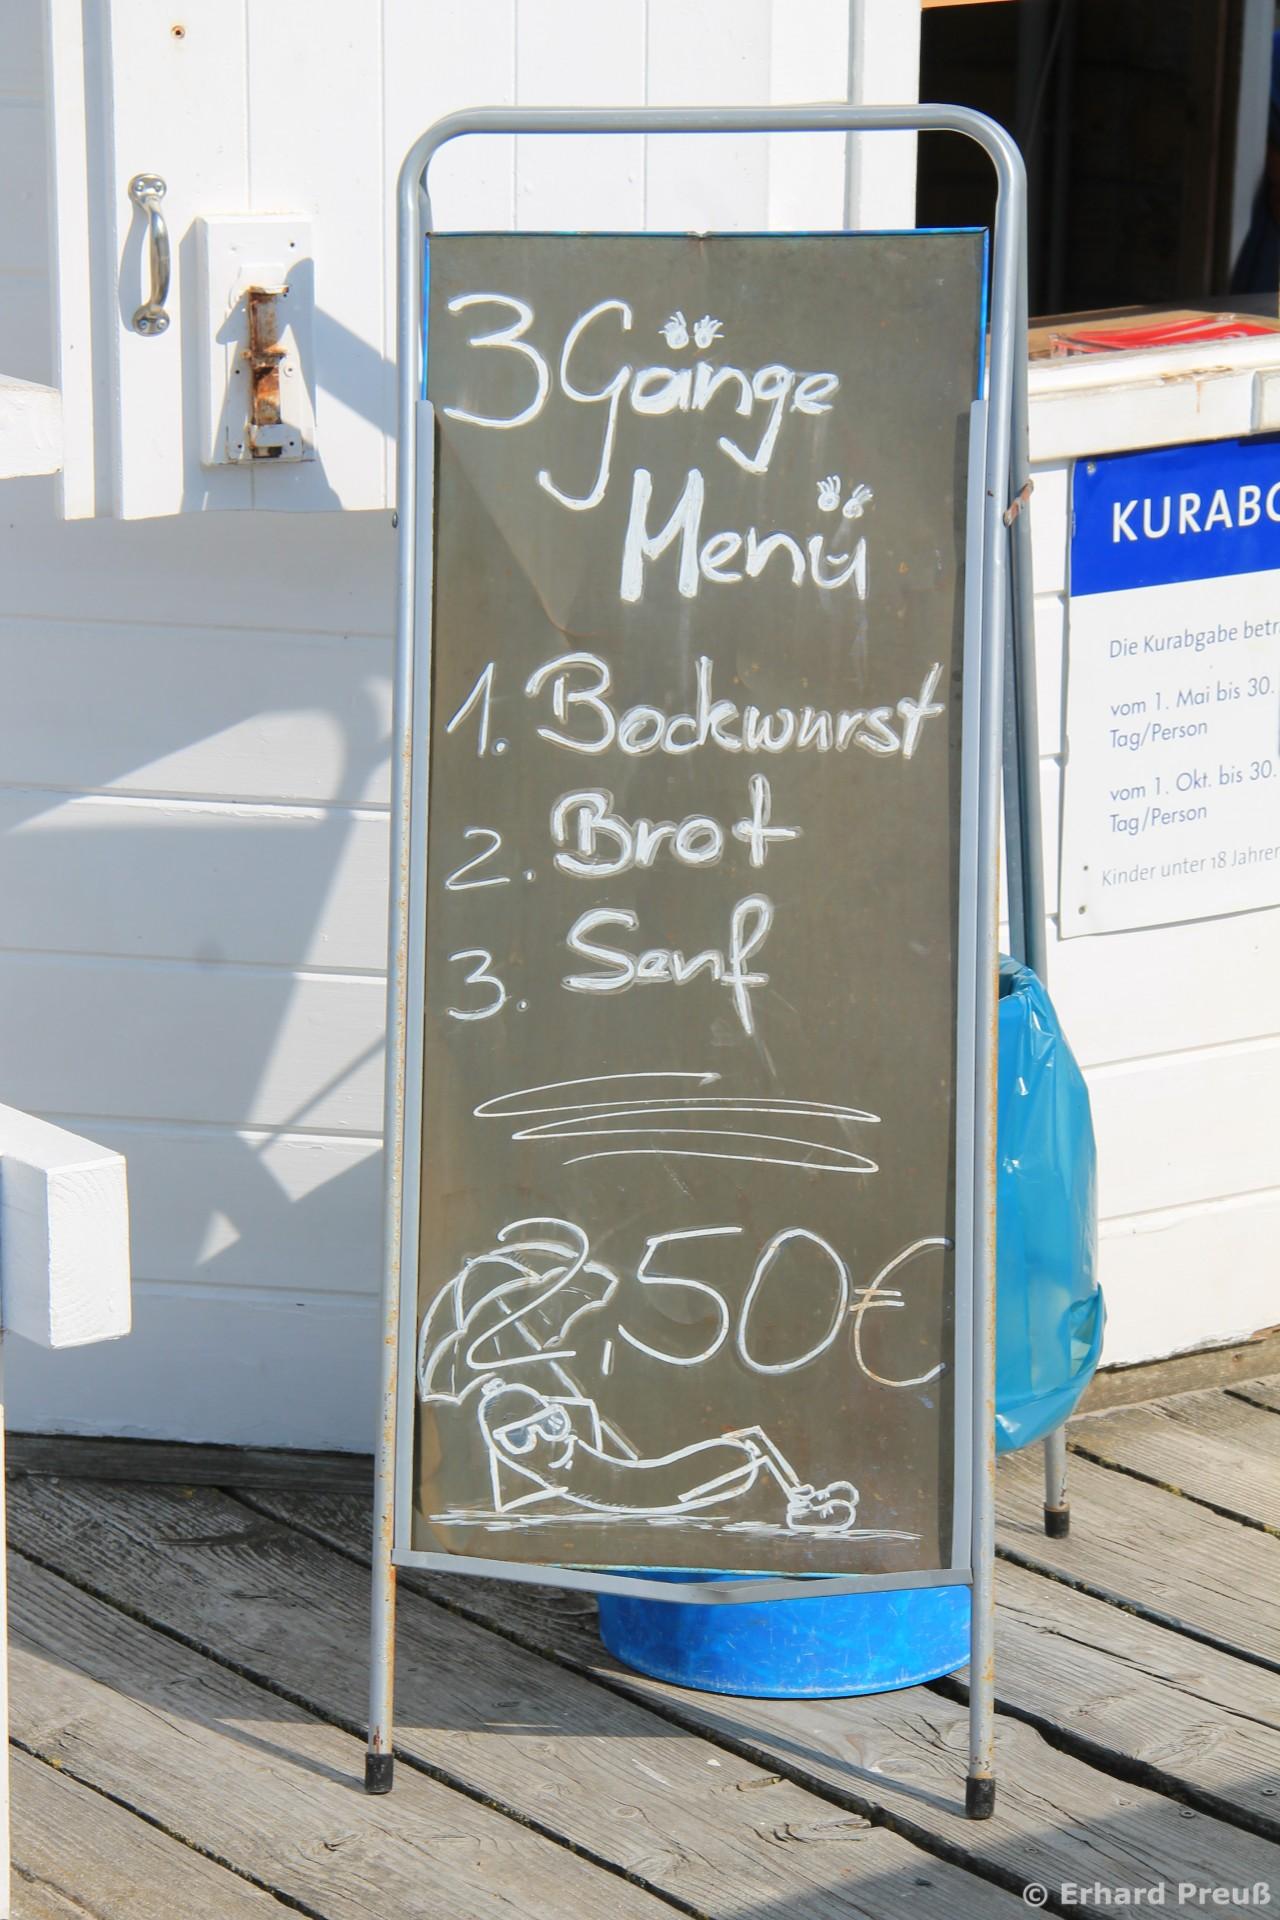 3 Gänge
Menü
1. Bockwurst
2. Brot
3. Senf
2,50€
KURABG
Die Kurabgabe betr
vom 1. Mai bis 30.
Tag/Person
vom 1. Okt. bis 30.
Tag/Person
Kinder unter 18 Jahren
© Erhard Preuß